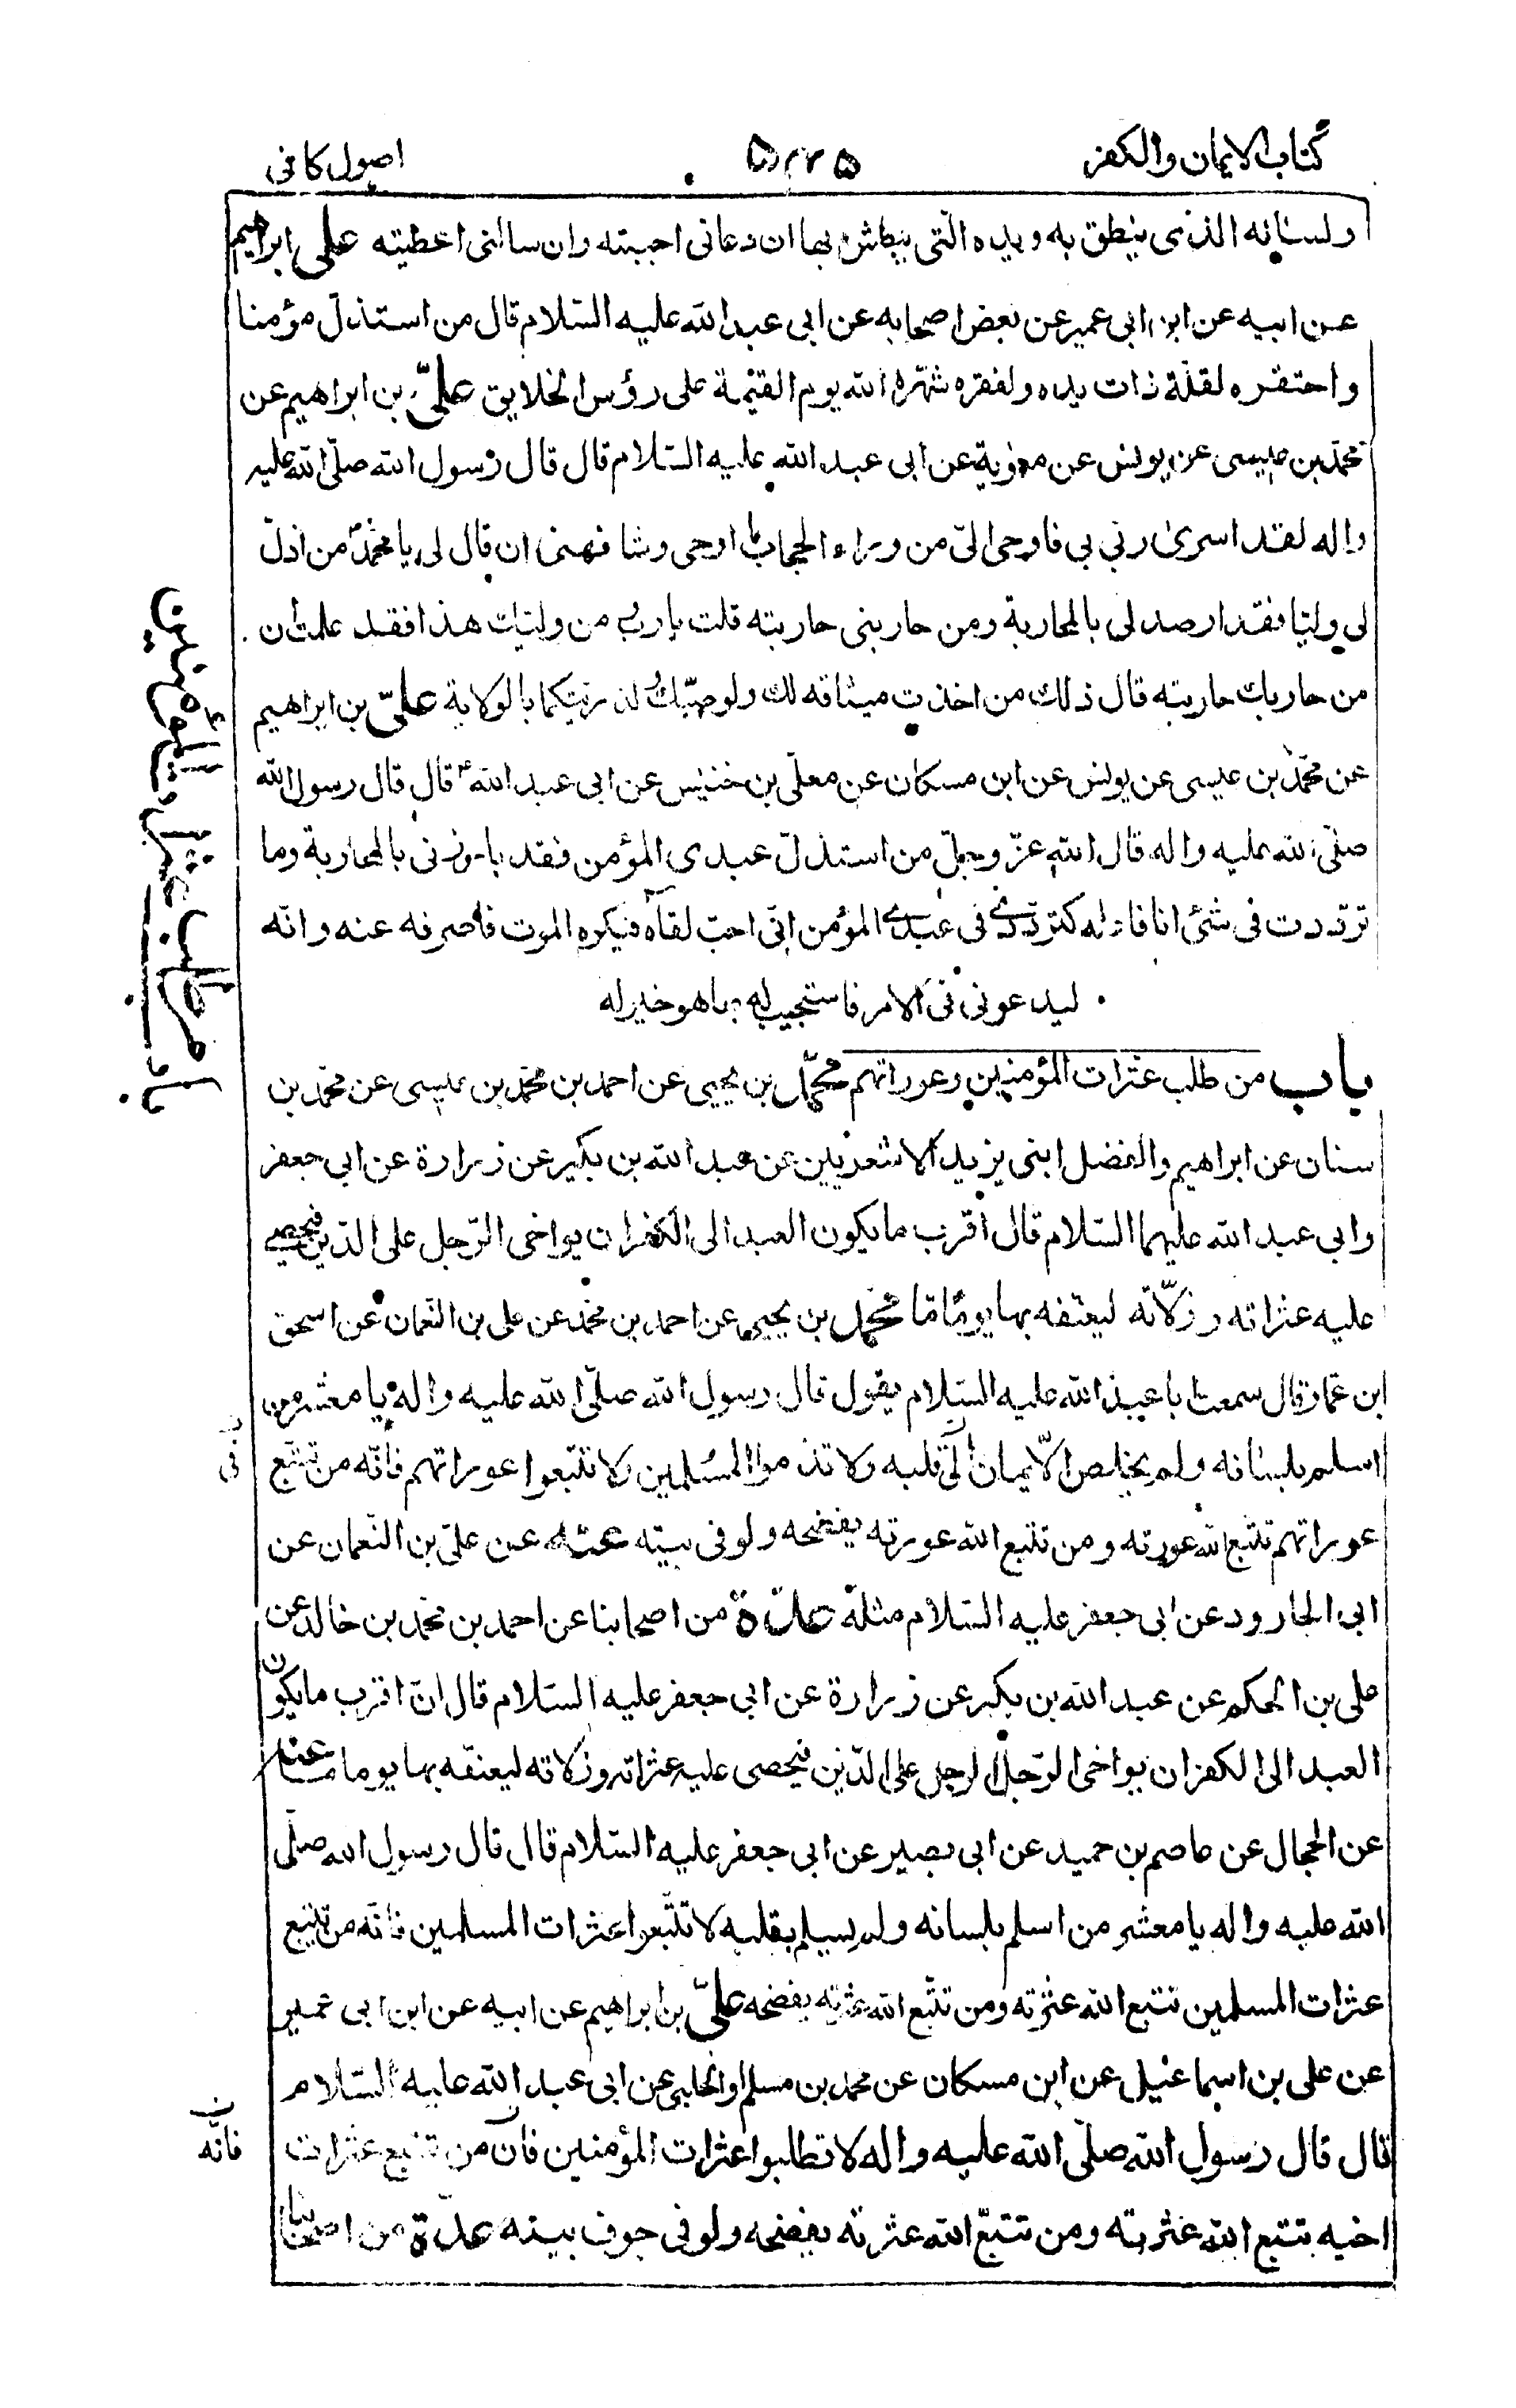 كتاب الايمان والكفر ۵۲۵ اصول كافى
ولسانه الذى ينطق به ويده الّتى يبطش بها ان دعانى اجبته وان سالنى اعطيته على ابراهيم
عن ابيه عن ابن ابى عمير عن بعض اصحابه عن ابى عبد الله عليه السّلام قال من استذلّ مؤمنا
واحتقره لقلّة ذات يده ولفقره شهّره الله يوم القيٰمة على رؤس الخلايق علىّ بن ابراهيم عن
محمّد بن عيسى عن يونس عن معوية عن ابى عبد الله عليه السّلام قال قال رسول الله صلّى الله عليه
واله لقد اسرىٰ ربّى بى فاوحى الىّ من وراء الحجاب ما اوحى وشافهنى ان قال لى يا محمّد من اذلّ
لى وليّا فقد ارصد لى بالمحاربة ومن حاربنى حاربته قلت يا ربّ من وليّك هذا فقد علمت ان
من حاربك حاربته قال ذلك من اخذت ميثاقه لك ولوصيّك ولذريّتكما بالولاية علىّ بن ابراهيم
عن محمّد بن عيسى عن يونس عن ابن مسكان عن معلّى بن خنيس عن ابى عبد الله ع قال قال رسول الله
صلّى الله عليه واله قال الله عزّ وجلّ من استذلّ عبدى المؤمن فقد بارزنى بالمحاربة وما
تردّدت فى شئ انا فاعله كتردّدى فى عبدى المؤمن انّى احبّ لقآءه فيكره الموت فاصرفه عنه وانّه
ليدعونى فى الامر فاستجيب له بما هو خير له
باب من طلب عثرات المؤمنين وعوراتهم محمّد بن يحيى عن احمد بن محمّد بن عيسى عن محمّد بن
سنان عن ابراهيم والفضل ابنى يزيد الاشعريين عن عبد الله بن بكير عن زرارة عن ابى جعفر
وابى عبد الله عليهما السّلام قال اقرب ما يكون العبد الى الكفر ان يواخى الرّجل على الدّين فيحصى
عليه عثراته وزلّاته ليعنّفه بها يومًا ما محمّد بن يحيى عن احمد بن محمّد عن على بن النّعمان عن اسحق
ابن عمّار قال سمعت ابا عبد الله عليه السّلام يقول قال رسول الله صلّى الله عليه واله يا معشر من
اسلم بلسانه ولم يخلص الايمان الى قلبه لا تذموا المسلمين ولا تتّبعوا عوراتهم فانّه من تتبّع
عوراتهم تتبّع الله عورته ومن تتبع الله عورته يفضحه ولو فى بيته عنه عن علىّ بن النّعمان عن
ابى الجارود عن ابى جعفر عليه السّلام مثله عدّة من اصحابنا عن احمد بن محمد بن خالد عن
على بن الحكم عن عبد الله بن بكير عن زرارة عن ابى جعفر عليه السّلام قال انّ اقرب ما يكون
العبد الى الكفر ان يواخى الرّجل الرجل على الدّين فيحصى عليه عثراته وزلاته ليعنفه بها يوما ما عنه
عن الحجال عن عاصم بن حميد عن ابى بصير عن ابى جعفر عليه السّلام قال قال رسول الله صلّى
الله عليه واله يا معشر من اسلم بلسانه ولم يسلم بقلبه لا تتّبعوا عثرات المسلمين فانّه من تتبع
عثرات المسلمين تتبع الله عثرته ومن تتّبع الله عثرته يفضحه علىّ بن ابراهيم عن ابيه عن ابن ابى عمير
عن على بن اسماعيل عن ابن مسكان عن محمد بن مسلم او الحلبى عن ابى عبد الله عليه السّلام
قال قال رسول الله صلّى الله عليه واله لا تطلبوا عثرات المؤمنين فانّ من تتبع عثرات
اخيه تتبع الله عثرته ومن تتبّع الله عثرته يفضحه ولو فى جوف بيته عدّة من اصحابنا
باب من طلب عثرات المؤمنين
فى
فانّه